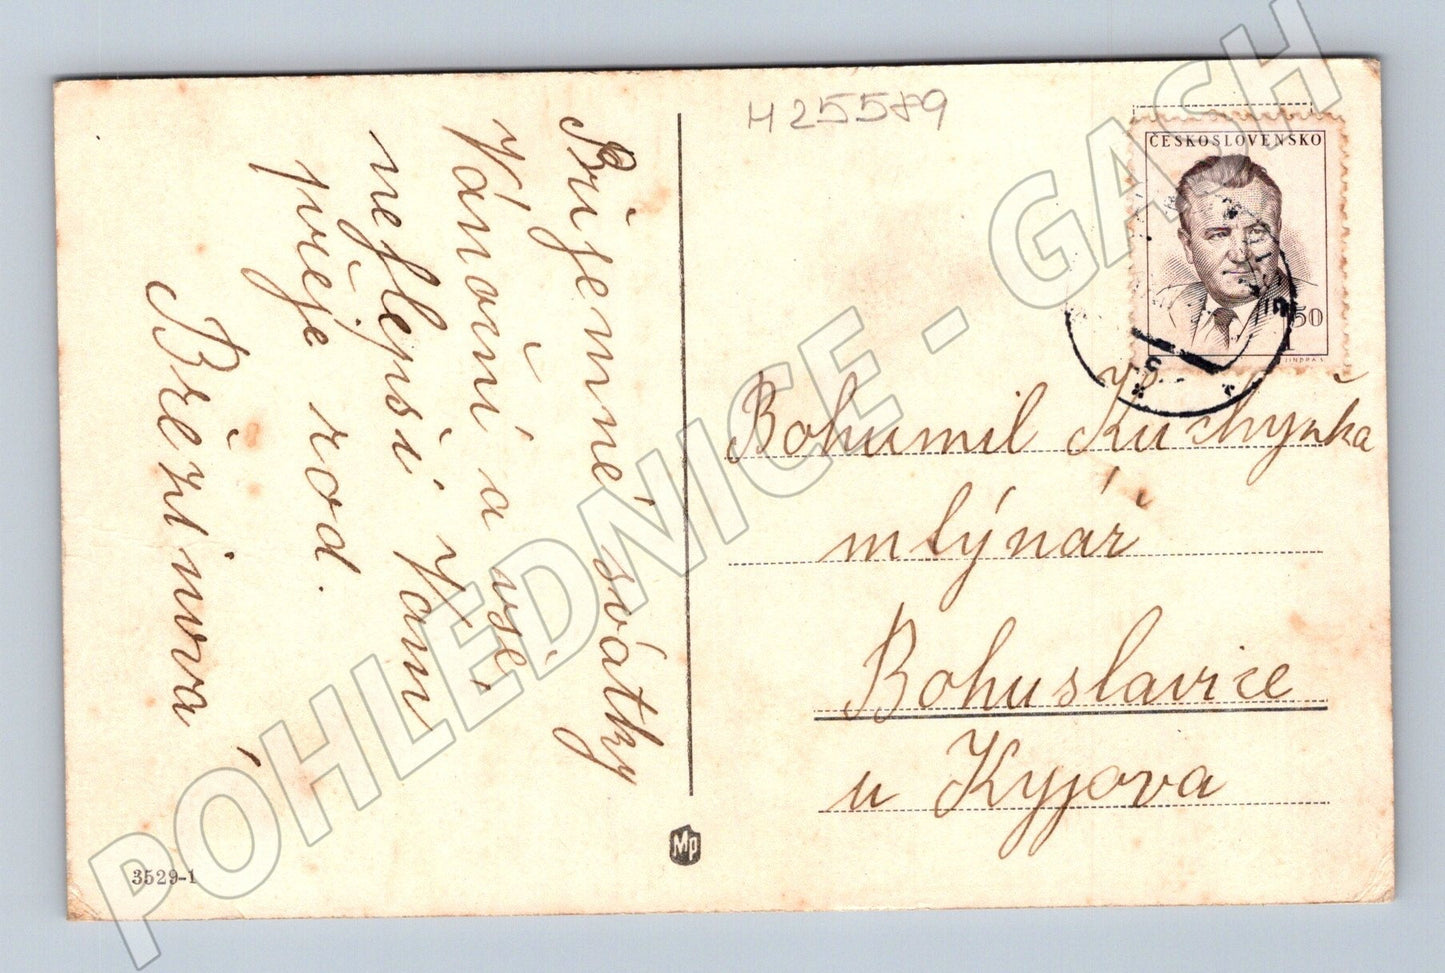 H25589
ČESKOSLOVENSKO
1 50
JINDRA S.
Příjemné svátky
Vánoční a vše
nejlepší Vám
přeje rod.
Březinová
Bohumil Kuchyňka
mlýnář
Bohuslavice
u Kyjova
Mp
3529-1
POHLEDNICE - GASH